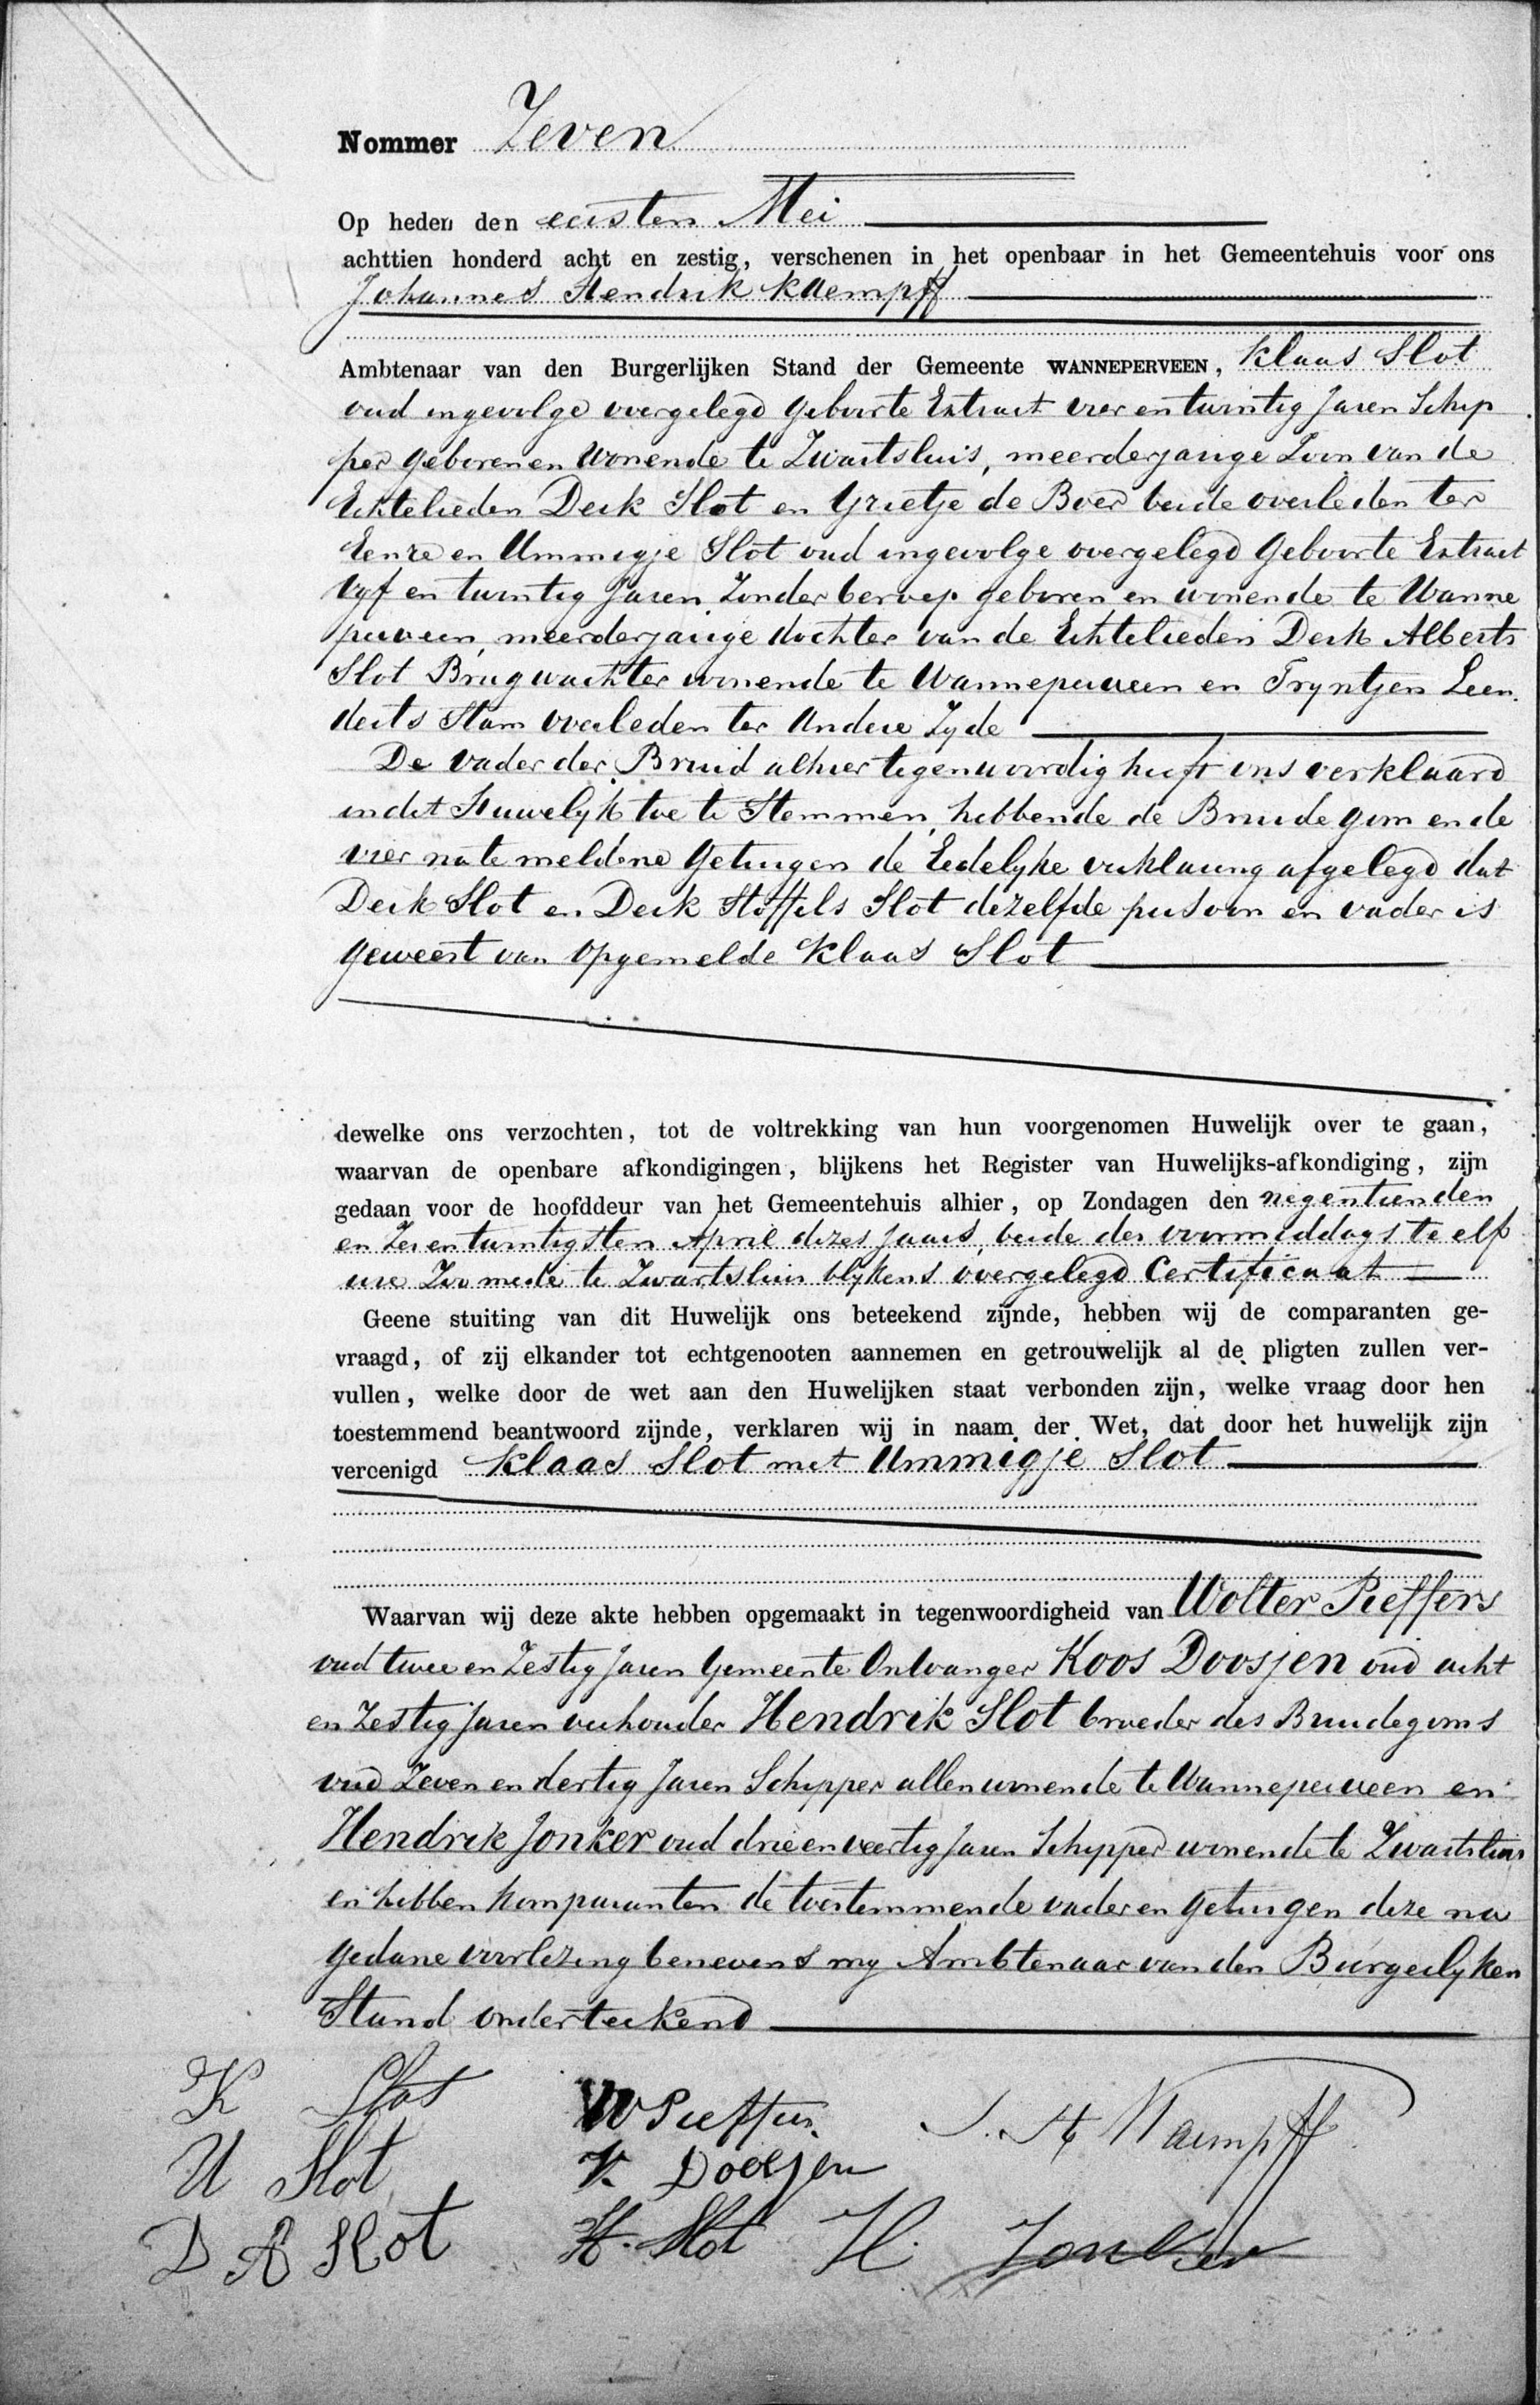 Nommer Zeven
Op heden den eersten Mei
achttien honderd acht en zestig, verschenen in het openbaar in het Gemeentehuis voor ons
Johannes Hendrik Kaempff
Ambtenaar van den Burgerlijken Stand der Gemeente WANNEPERVEEN, Klaas Slot
oud ingevolge overgelegd Geboorte Extract vier en twintig Jaren Schip
per geboren en wonende te Zwartsluis, meerderjarige Zoon van de
Echtelieden Derk Slot en Grietje de Boer beide overleden ter
Eenre en Ummigje Slot oud ingevolge overgelegd Geboorte Extract
vyf en twintig Jaren Zonder beroep geboren en wonende te Wanne
perveen, meerderjarige dochter van de Echtelieden Derk Alberts
Slot Brugwachter wonende te Wanneperveen en Tryntjen Leen
derts Stam overleden ter Andere Zyde
De vader der Bruid alhier tegenwoordig heeft ons verklaard
in dit Huwelyk toe te Stemmen, hebbende de Bruidegom en de
vier na te meldene Getuigen de Eedelyke verklaring afgelegd dat
Derk Slot en Derk Stoffels Slot dezelfde persoon en vader is
geweest van opgemelde Klaas Slot
dewelke ons verzochten, tot de voltrekking van hun voorgenomen Huwelijk over te gaan,
waarvan de openbare afkondigingen, blijkens het Register van Huwelijks-afkondiging, zijn
gedaan voor de hoofddeur van het Gemeentehuis alhier, op Zondagen den negentienden
en Zes en twintigsten April dezes Jaars, beide des voormiddags te elf
ure Zoo mede te Zwartsluis blykens overgelegd Certificaat
Geene stuiting van dit Huwelijk ons beteekend zijnde, hebben wij de comparanten ge-
vraagd, of zij elkander tot echtgenooten aannemen en getrouwelijk al de pligten zullen ver-
vullen, welke door de wet aan den Huwelijken staat verbonden zijn, welke vraag door hen
toestemmend beantwoord zijnde, verklaren wij in naam der Wet, dat door het huwelijk zijn
vereenigd Klaas Slot met Ummigje Slot
Waarvan wij deze akte hebben opgemaakt in tegenwoordigheid van Wolter Pieffers
oud twee en Zestig Jaren Gemeente Ontvanger Koos Doosjen oud acht
en Zestig Jaren veehouder Hendrik Slot broeder des Bruidegoms
oud Zeven en dertig Jaren Schipper allen wonende te Wanneperveen en
Hendrik Jonker oud drie en veertig Jaren Schipper wonende te Zwartsluis
en hebben komparanten de toestemmende vader en Getuigen deze na
gedane voorlezing benevens my Ambtenaar van den Burgerlyken
Stand onderteekend
K Slot W Pieffers J. H. Kaempff
U Slot K Doosjen
D A Slot H. Slot H. Jonker